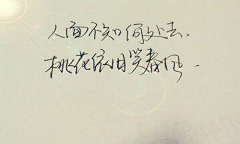 人面不知何处去，
桃花依旧笑春风。